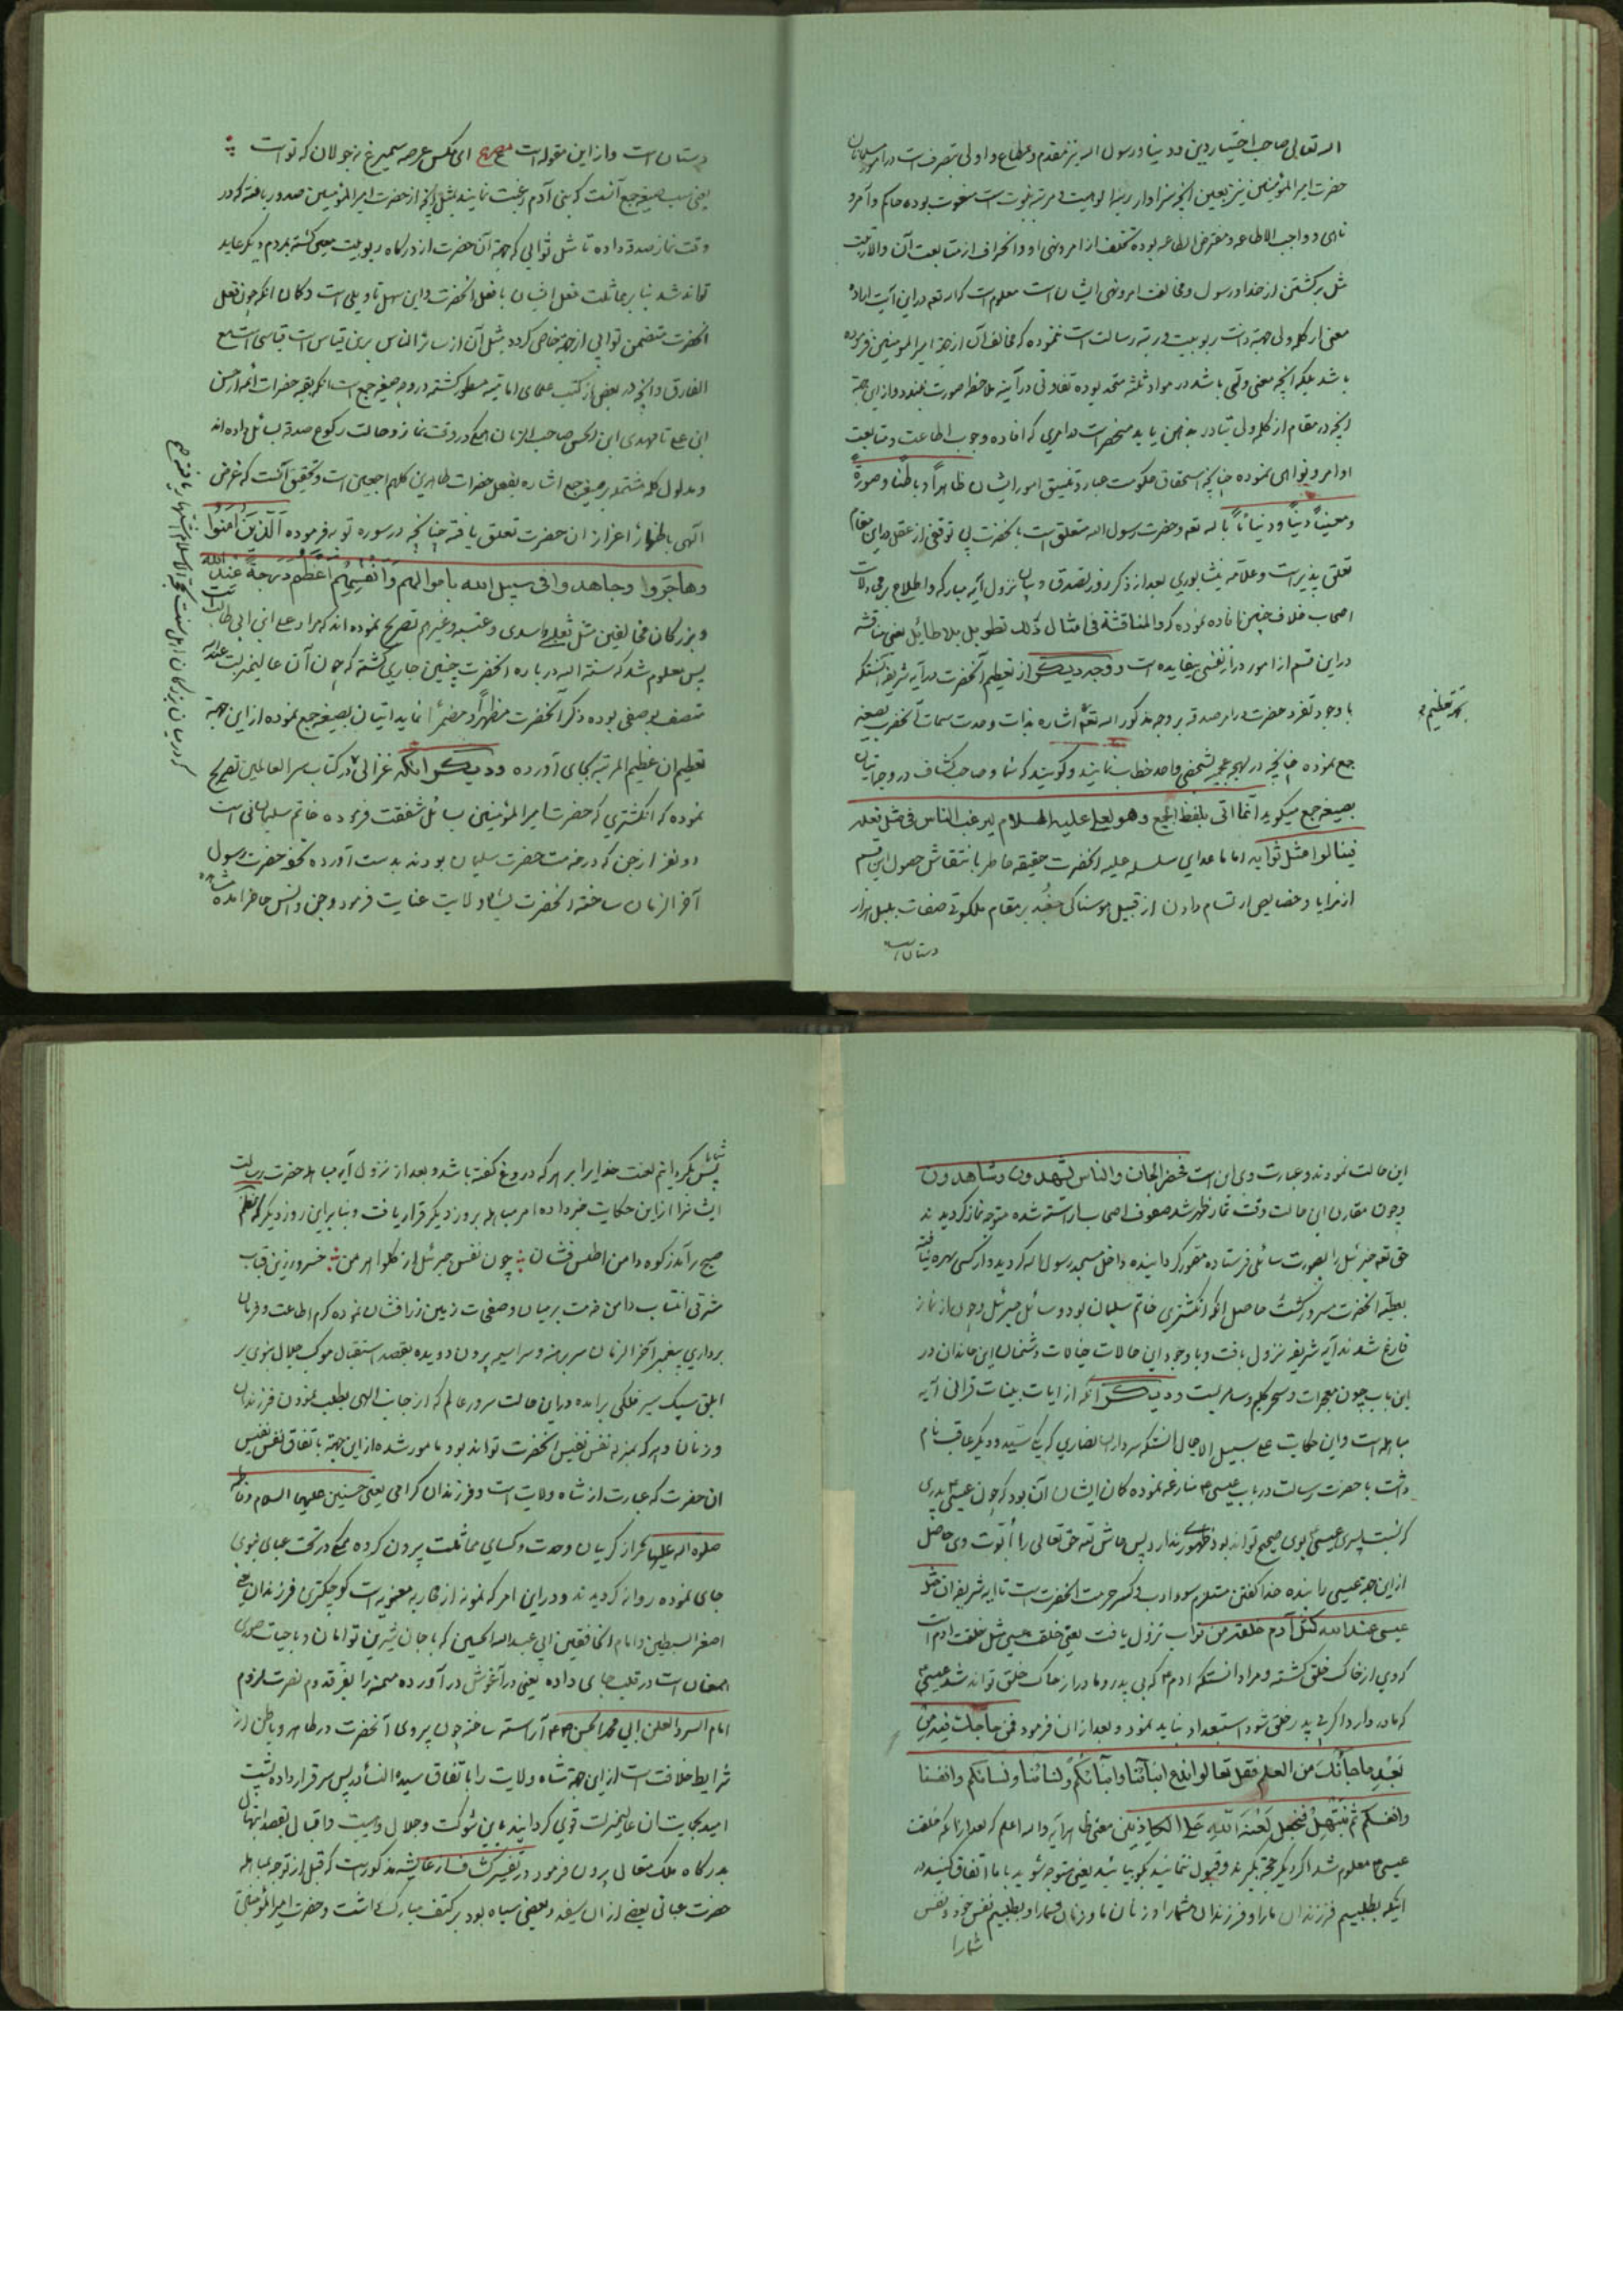 الله تعالی صاحب اختیار دین و دنیا و رسول الله نیز مقدم و مطاع و اولی بتصرف است در امور مسلمانان
حضرت امیر المؤمنین نیز بعین آنچه سزاوار رتبه الوهیت و مرتبه نبوت است منعوت بوده حاکم و آمر و
ناهی و واجب الاطاعه و مفترض الطاعه بوده تخلف از امر و نهی او و انحراف از متابعت آن والارتبت
مثل برگشتن از خدا و رسول و مخالفت امر و نهی ایشان است معلوم است که الله تعه در این آیت اراده
معنی از کلمه ولی جهة ذات ربوبیت و رتبه رسالت است ننموده که مخالف آن از جهة امیر المومنین فرموده
باشد بلکه آنچه معنی ولی باشد در مواد ثلثه متحد بوده تفاوتی در آینه ملاحظه صورت نبندد و از این جهة
آنچه در مقام از کلمه ولی تبادر بذهن یابد منحصر است در امری که افاده وجوب اطاعت و متابعت
اوامر و نواهی نموده چنانچه استحقاق حکومت عباد و تنسیق امور ایشان ظاهراً و باطناً و صورةً
و معیناً دیناً و دنیاناً با له تعه و حضرت رسول الله متعلق است بآنحضرت بی توقفی از عقل در این مقام
تعلق پذیر است و علامه نیشابوری بعد از ذکر روز تصدق و بیان نزول آیه مبارکه و اطلاع بر مجادلات
اصحاب خلاف چنین افاده نموده که والمناقشة فی امثال ذلک تطویل بلا طائل یعنی مناقشه
در این قسم از امور دراز نفسی بیفایده است و وجه دیگر از تعظیم آنحضرت در آیه شریفه آنستکه
با وجود تفرد حضرت در امر صدقه بر وجه مذکور الله تعه اشاره بذات وحدت سمات آنحضرت بصیغه
بجهة تعظیم
جمع نموده چنانچه در لهجه عجم بشخصی واحد خطاب نمایند و گویند که شما و صاحب کشاف در وجه اتیان
بصیغه جمع میگوید انما اتی بلفظ الجمع وهو لعلی علیه السلام لیرغب الناس فی مثل فعله
فینالوا مثل ثوابه اما ما عدای سلسله علیه آنحضرت حقیقه خاطر بانتقاش حصول این قسم
از مزایا و خصایص ارتسام دادن از قبیل هوسناکی جغد بر مقام ملکوتی صفات بلبل هزار
دستان است
دستان است و از این مقوله است مصرع ای مگس عرصه سیمرغ نه جولان که تو است
یعنی سبب صیغه جمع آنست که بنی آدم رغبت نمایند بمثل آنچه از حضرت امیر المؤمنین صدور یافته که در
وقت نماز صدقه داده تا مثل ثوابی که جهة آن حضرت از درگاه ربوبیت معین گشته بمردم دیگر عاید
تواند شد بنابر مماثلت فعل ایشان با فعل آنحضرت و این سهل تأویلی است و گمان آنکه چون فعل
آنحضرت متضمن ثوابی از جهة خاص گردد مثل آن از سائر الناس بر این قیاس است قیاسی است مع
الفارق و آنچه در بعضی از کتب علمای امامیه مسطور گشته در وجه صیغه جمع است آنکه بقیه حضرات ائمه از حسن
ابن علی تا مهدی ابن الحسن صاحب الزمان همگی در وقت نماز و حالت رکوع صدقه بسائل داده اند
و مدلول کلمه مشتمله بر صیغه جمع اشاره بفعل حضرات طاهرین کلهم اجمعین است و تحقیق آنست که غرض
الهی باظهار اعزاز آن حضرت تعلق یافته چنانچه در سوره توبه فرموده الذین آمنوا
وهاجروا وجاهدوا فی سبیل الله باموالهم وانفسهم اعظم درجة عند الله
و بزرگان مخالفین مثل ثعلبی و اسدی و عتبه و غیرهم تصریح نموده اند که مراد علی ابن ابی طالب است
پس معلوم شد که سنة الله در باره آنحضرت چنین جاری گشته که چون آن عالیمنزلت عند الله
متصف بوصفی بوده ذکر آنحضرت مظهراً و مضمراً نماید اتیان بصیغه جمع نموده از این جهة
تعظیم آن عظیم المرتبه بجای آورده و دیگر آنکه غزالی در کتاب سر العالمین تصریح
نموده که انگشتری که حضرت امیر المؤمنین بسائل شفقت فرموده خاتم سلیمانی است
دو نفر از جن که در خدمت حضرت سلیمان بودند بدست آورده تحفه حضرت رسول
آخر الزمان ساخته آنحضرت بشاه ولایت عنایت فرمود و جن و انس حاضر آمده مشاهده
که در میان بزرگان اهل سنت بحجة الاسلام اشتهار یافته
این حالت نمودند و عبارت وی این است فحضر الجان والناس یشهدون ویشاهدون
و چون مقارن این حالت وقت نماز ظهر شد صفوف اصحاب آراسته شده متوجه نماز گردیدند
حق تعه جبرئیل را بصورت سائلی فرستاده مقرر گردانیده داخل مسجد رسول الله گردید و از کسی بهره نیافته
بعطیه آنحضرت مسرور گشت حاصل آنکه انگشتری خاتم سلیمان بود و سائل جبرئیل و چون از نماز
فارغ شدند آیه شریفه نزول یافت و با وجود این حالات خیالات دشمنان این خاندان در
این باب چون معجزات و سحر کلیم و سامریست و دیگر آنکه از آیات بینات قرآنی آیه
مباهله است و این حکایت علی سبیل الاجمال آنستکه سرداران نصاری که یکی سید و دیگر عاقب نام
داشت با حضرت رسالت در باب عیسی منازعه نموده گمان ایشان آن بود که چون عیسی پدری
که نسبت پسری عیسی بوی صحیح تواند بود ظهوری ندارد پس حاش لله حق تعالی را ابوت وی حاصل
از این جهة عیسی را بنده خدا گفتن مستلزم سوء ادب و کسر حرمت آنحضرت است تا آیه شریفه ان مثل
عیسی عند الله کمثل آدم خلقه من تراب نزول یافت یعنی خلقت عیسی مثل خلقت آدم است
که وی از خاک خلق گشته و مراد آنستکه آدم که بی پدر و مادر از خاک خلق تواند شد عیسی
که مادر دارد اگر بی پدر خلق شود استبعاد نباید نمود و بعد از آن فرمود فمن حاجک فیه من
بعد ما جائک من العلم فقل تعالوا ندع ابنائنا وابنائکم ونسائنا ونسائکم وانفسنا
وانفسکم ثم نبتهل فنجعل لعنة الله علی الکاذبین معنی ظاهر آیه والله اعلم که بعد از آنکه خلقت
عیسی معلوم شد اگر دیگر حجة گیرند و قبول ننمایند بگو بیائید یعنی متوجه شوید با ما اتفاق کنید در
اینکه بطلبیم فرزندان ما را و فرزندان شما را و زنان ما و زنان شما را و بطلبیم نفس خود و نفس
شما را
پس بگردانیم لعنت خدایرا بر هر که دروغ گفته باشد و بعد از نزول آیه مباهله حضرت رسالت
ایشانرا از این حکایت خبر داده امر مباهله بروز دیگر قرار یافت و بنابراین روز دیگر که
صبح برآمد ز کوه دامن اطلس فشان چون نفس جبرئیل از گلو اهرمن خسرو زرین قباب
مشرقی انتساب دامن خدمت بر میان و صفحات زمین زرافشان نموده کرم اطاعت و فرمان
برداری پیغمبر آخر الزمان سر برهنه و سراسیمه بیرون دویده بقصد استقبال موکب جلال نبوی بر
ابلق سبک سیر فلکی برآمده در این حالت سرور عالم که از جانب الهی بطلب نمودن فرزندان
و زنان و هر که بمنزله نفس نفیس آنحضرت تواند بود مامور شده از این جهة باتفاق نفس نفیس
آن حضرت که عبارت از شاه ولایت است و فرزندان گرامی یعنی حسنین علیهما السلام و فاطمه
صلوة الله علیها از گریبان وحدت و کسای مماثلت بیرون کرده همگی در تحت عبای نبوی
جای نموده روانه گردیدند و در این امر که نمونه از محاربه معنویه است کوچکتری فرزندان یعنی
اصغر السبطین و امام الخافقین ابی عبد الله الحسین که با جان شیرین توامان و با حیات صوری
همعنان است در قلب جای داده یعنی در آغوش در آورده میمنه را بفر قدوم نصرت لزوم
امام السر والعلن ابی محمد الحسن آراسته ساخته چون پیروی آنحضرت در ظاهر و باطن از
شرایط خلافت است از این جهة شاه ولایت را باتفاق سیدة النساء در پس سر قرار داده پشت
امید بحمایت آن عالیمنزلت قوی گردانیده باین شوکت و جلال و هیبت و اقبال بقصد ابتهال
بدرگاه ملک متعال بیرون فرمود در تفسیر کشاف از عایشه مذکور است که قبل از توجه بمباهله
حضرت عبائی بعضی از آن سفید و بعضی سیاه بود بر کتف مبارک داشت و حضرت امیر المؤمنین